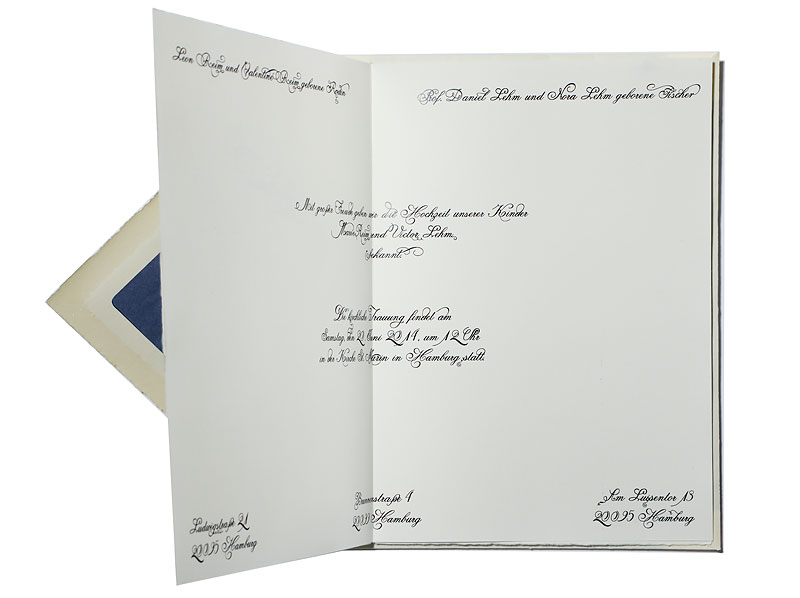 Leon Reim und Valentine Reim geborene Roden
Prof. Daniel Lehm und Nora Lehm geborene Tischer
Mit großer Freude geben wir die Hochzeit unserer Kinder
Marie Reim und Victor Lehm
bekannt.
Die kirchliche Trauung findet am
Samstag, den Juni 2014, um 12 Uhr
in der Kirche St. in Hamburg statt.
Ludwigstraße 21
20095 Hamburg
4
Hamburg
Am Luisentor 13
20095 Hamburg